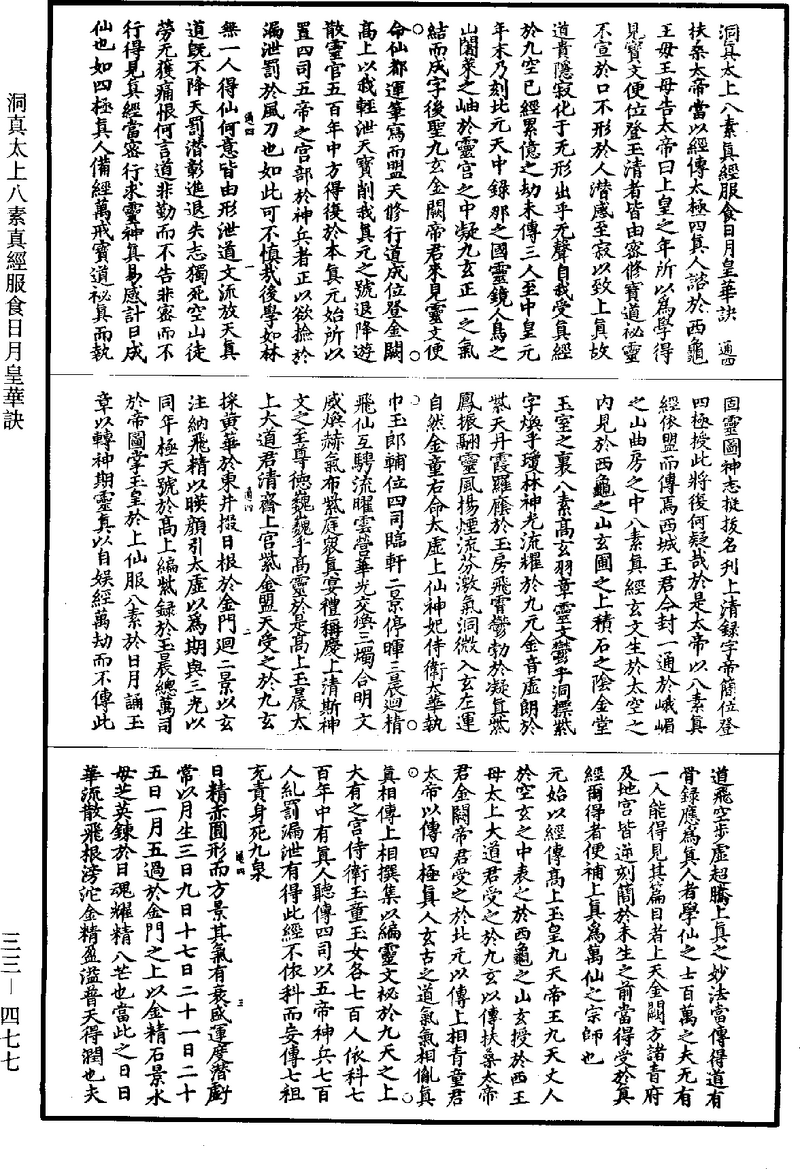 洞真太上八素真經服食日月皇華訣　通四
扶桑太帝當以經傳太極四真人諮於西龜
王母王母告太帝曰上皇之年所以為學得
見寶文便位登玉清者皆由密修寶道祕靈
不宣於口不形於人潛感至寂以致上真故
道貴隱寂化于无形出乎无聲自我受真經
於九空已經累億之劫未傳三人至中皇元
年末乃刻北元天中錄那之國靈鏡人鳥之
山闔萊之岫於靈宮之中凝九玄正一之氣
結而成字後聖九玄金闕帝君來見靈文便
命仙都運筆寫而盟天修行道成位登金闕
高上以我輕泄天寶削我真元之號退降遊
散靈官五百年中方得後於本真元始所以
置四司五帝之官部於神兵者正以欲撿於
漏泄罰於風刀也如此可不慎哉後學如林
無一人得仙何意皆由形泄道文流放天真
通四　一
道既不降天罰潛彰進退失志獨死空山徒
勞无獲痛恨何言道非勤而不告非密而不
行得見真經當密行求靈神真易感計日成
仙也如四極真人備經萬戒寶道祕真而執
固靈圖神志挺拔名刊上清錄字帝簡位登
四極授此將後何疑哉於是太帝以八素真
經依盟而傳焉西城王君今封一通於峨嵋
之山曲房之中八素真經玄文生於太空之
內見於西龜之山玄圃之上積石之陰金堂
玉室之裏八素高玄羽章靈文鬱乎洞標紫
字煥乎瓊林神光流耀於九元金音虛朗於
紫天丹霞羅蔭於玉房飛霄鬱勃於凝真紫
鳳振翮靈風揚煙流芬激氣洞微入玄左運
自然金童右命太虛上仙神妃侍衛太華執
巾玉郎輔位四司臨軒二景停暉三晨迴精
飛仙互騁流曜雲營華光交煥三燭合明文
威煥赫氣布紫庭眾真宴禮稱慶上清斯神
文之至尊德巍巍乎高靈於是高上玉晨太
上大道君清齋上宮紫金盟天受之於九玄
通四　二
採黃華於東井掇日根於金門迴二景以玄
注納飛精以暎顏引太虛以為期與三光以
同年極天號於高上編紫錄於玉晨總萬司
於帝圖掌玉皇於上仙服八素於日月誦玉
章以轉神期靈真以自娛經萬劫而不傳此
道飛空步虛超騰上真之妙法當傳得道有
骨錄應為真人者學仙之士百萬之夫无有
一人能得見其篇目者上天金闕方諸青府
及地官皆逆刻簡於未生之前當得受於真
經爾得者便補上真為萬仙之宗師也
元始以經傳高上玉皇九天帝王九天丈人
於空玄之中表之於西龜之山玄授於西王
母太上大道君受之於九玄以傳扶桑太帝
君金闕帝君受之於北元以傳上相青童君
太帝以傳四極真人玄古之道氣氣相胤真
真相傳上相撰集以編靈文祕於九天之上
大有之宮侍衛玉童玉女各七百人依科七
百年中有真人聽傳四司以五帝神兵七百
人糺罰漏泄有得此經不依科而妄傳七祖
充責身死九泉
通四　三
日精赤圓形而方景其氣有衰盛運度潛虧
常以月生三日九日十七日二十一日二十
五日一月五過於金門之上以金精石景水
母芝英鍊於日魂耀精八芒也當此之日日
華流散飛根滂沱金精盈溢普天得潤也夫
洞真太上八素真經服食日月皇華訣
三三—四七七